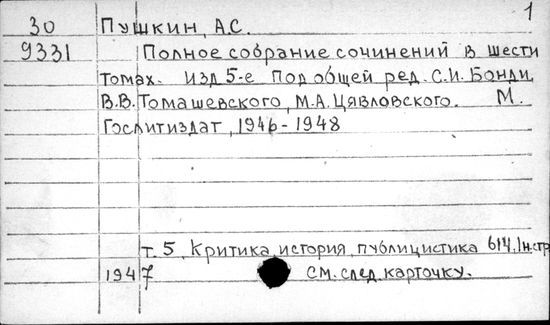 1
30 Пушкин, А.С.
9331 Полное собрание сочинений в шести
томах. Изд 5-е Под общей ред. С.И. Бонди,
В.В. Томашевского, М.А. Цявловского. М.
Гослитиздат, 1946-1948
т. 5. Критика, история, публицистика 614.
1947 См. след. карточку.